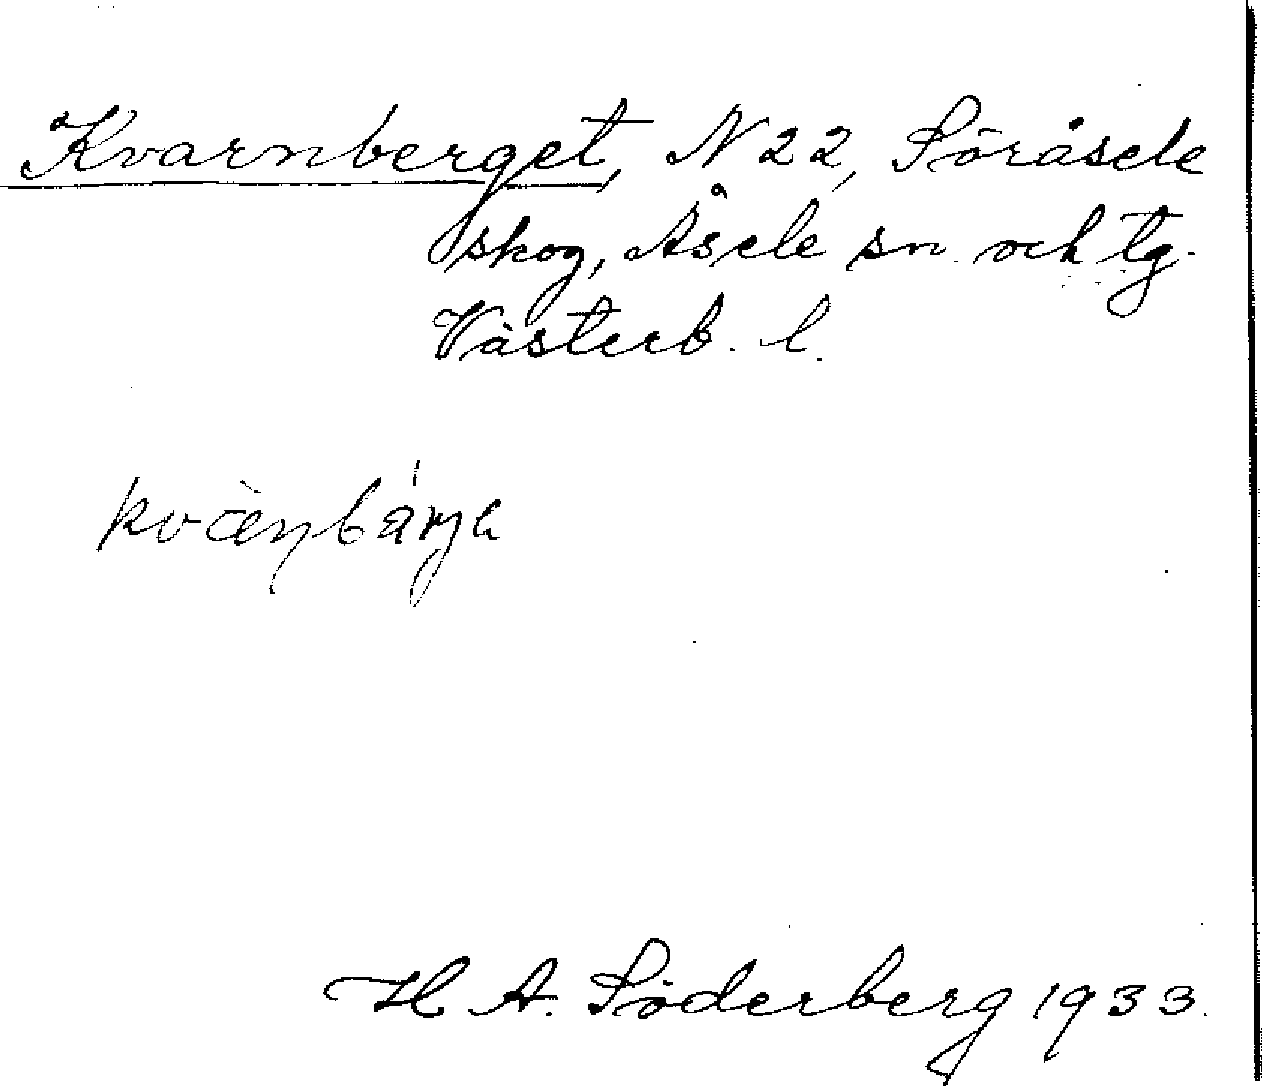 Kvarnberget, N 22, Söråsele
skog, Åsele sn och tg.
Västerb. l.
H A. Söderberg 1933.